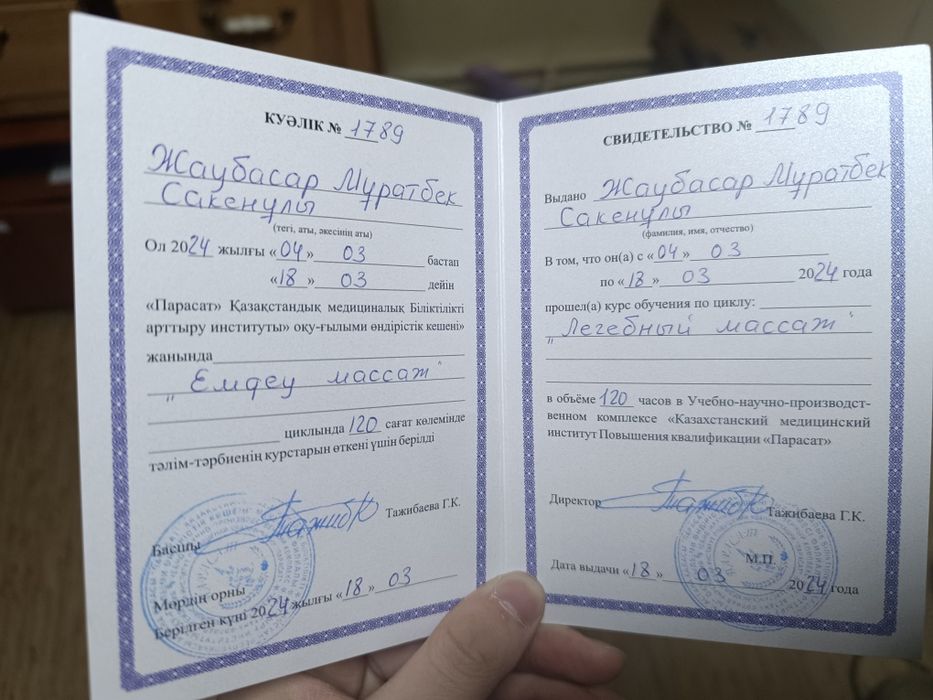 КУӘЛІК № 1789
Жаубасар Мұратбек
Сакенұлы
(тегі, аты, әкесінің аты)
Ол 2024 жылғы «04» 03 бастап
«18» 03 дейін
«Парасат» Қазақстандық медициналық Біліктілікті
арттыру институты» оқу-ғылыми өндірістік кешені»
жанында
"Емдеу массаж"
циклында 120 сағат көлемінде
тәлім-тәрбиенің курстарын өткені үшін берілді
Басшы Тажибаева Г.К.
Мөрдің орны
Берілген күні 2024 жылғы «18» 03
СВИДЕТЕЛЬСТВО № 1789
Выдано Жаубасар Мұратбек
Сакенұлы
(фамилия, имя, отчество)
В том, что он(а) с «04» 03
по «18» 03 2024 года
прошел(а) курс обучения по циклу:
"Легебный массаж"
в объёме 120 часов в Учебно-научно-производст-
венном комплексе «Казахстанский медицинский
институт Повышения квалификации «Парасат»
Директор Тажибаева Г.К.
М.П.
Дата выдачи «18» 03 2024 года